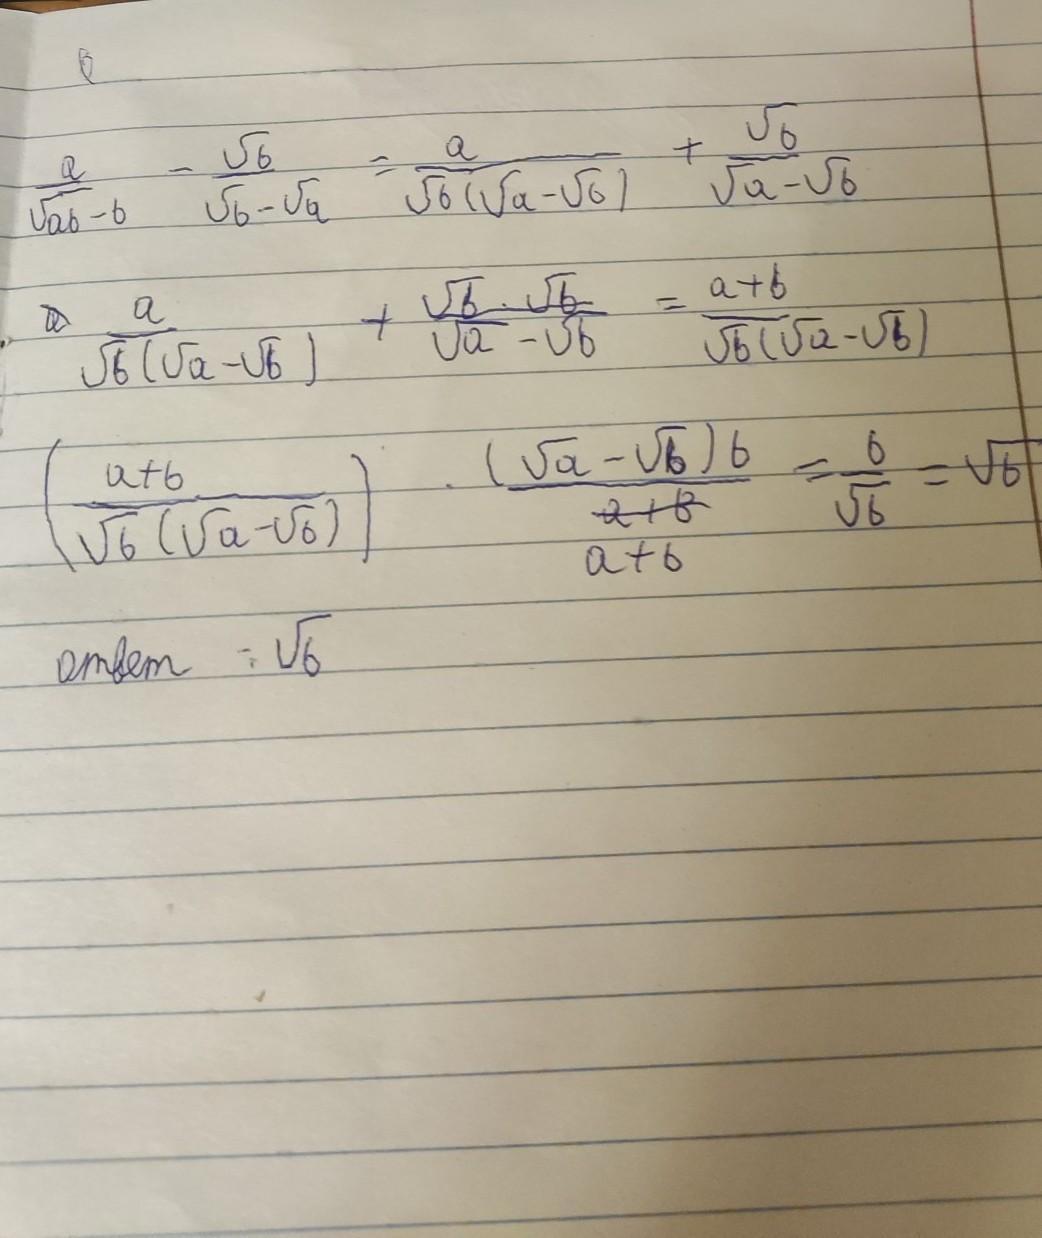 a/(√ab - b) - √b/(√b - √a) = a/(√b(√a - √b)) + √b/(√a - √b)
a/(√b(√a - √b)) + (√b · √b)/(√a - √b) = (a+b)/(√b(√a - √b))
((a+b)/(√b(√a - √b))) · ((√a - √b)b)/(a+b) = b/√b = √b
ответ : √b